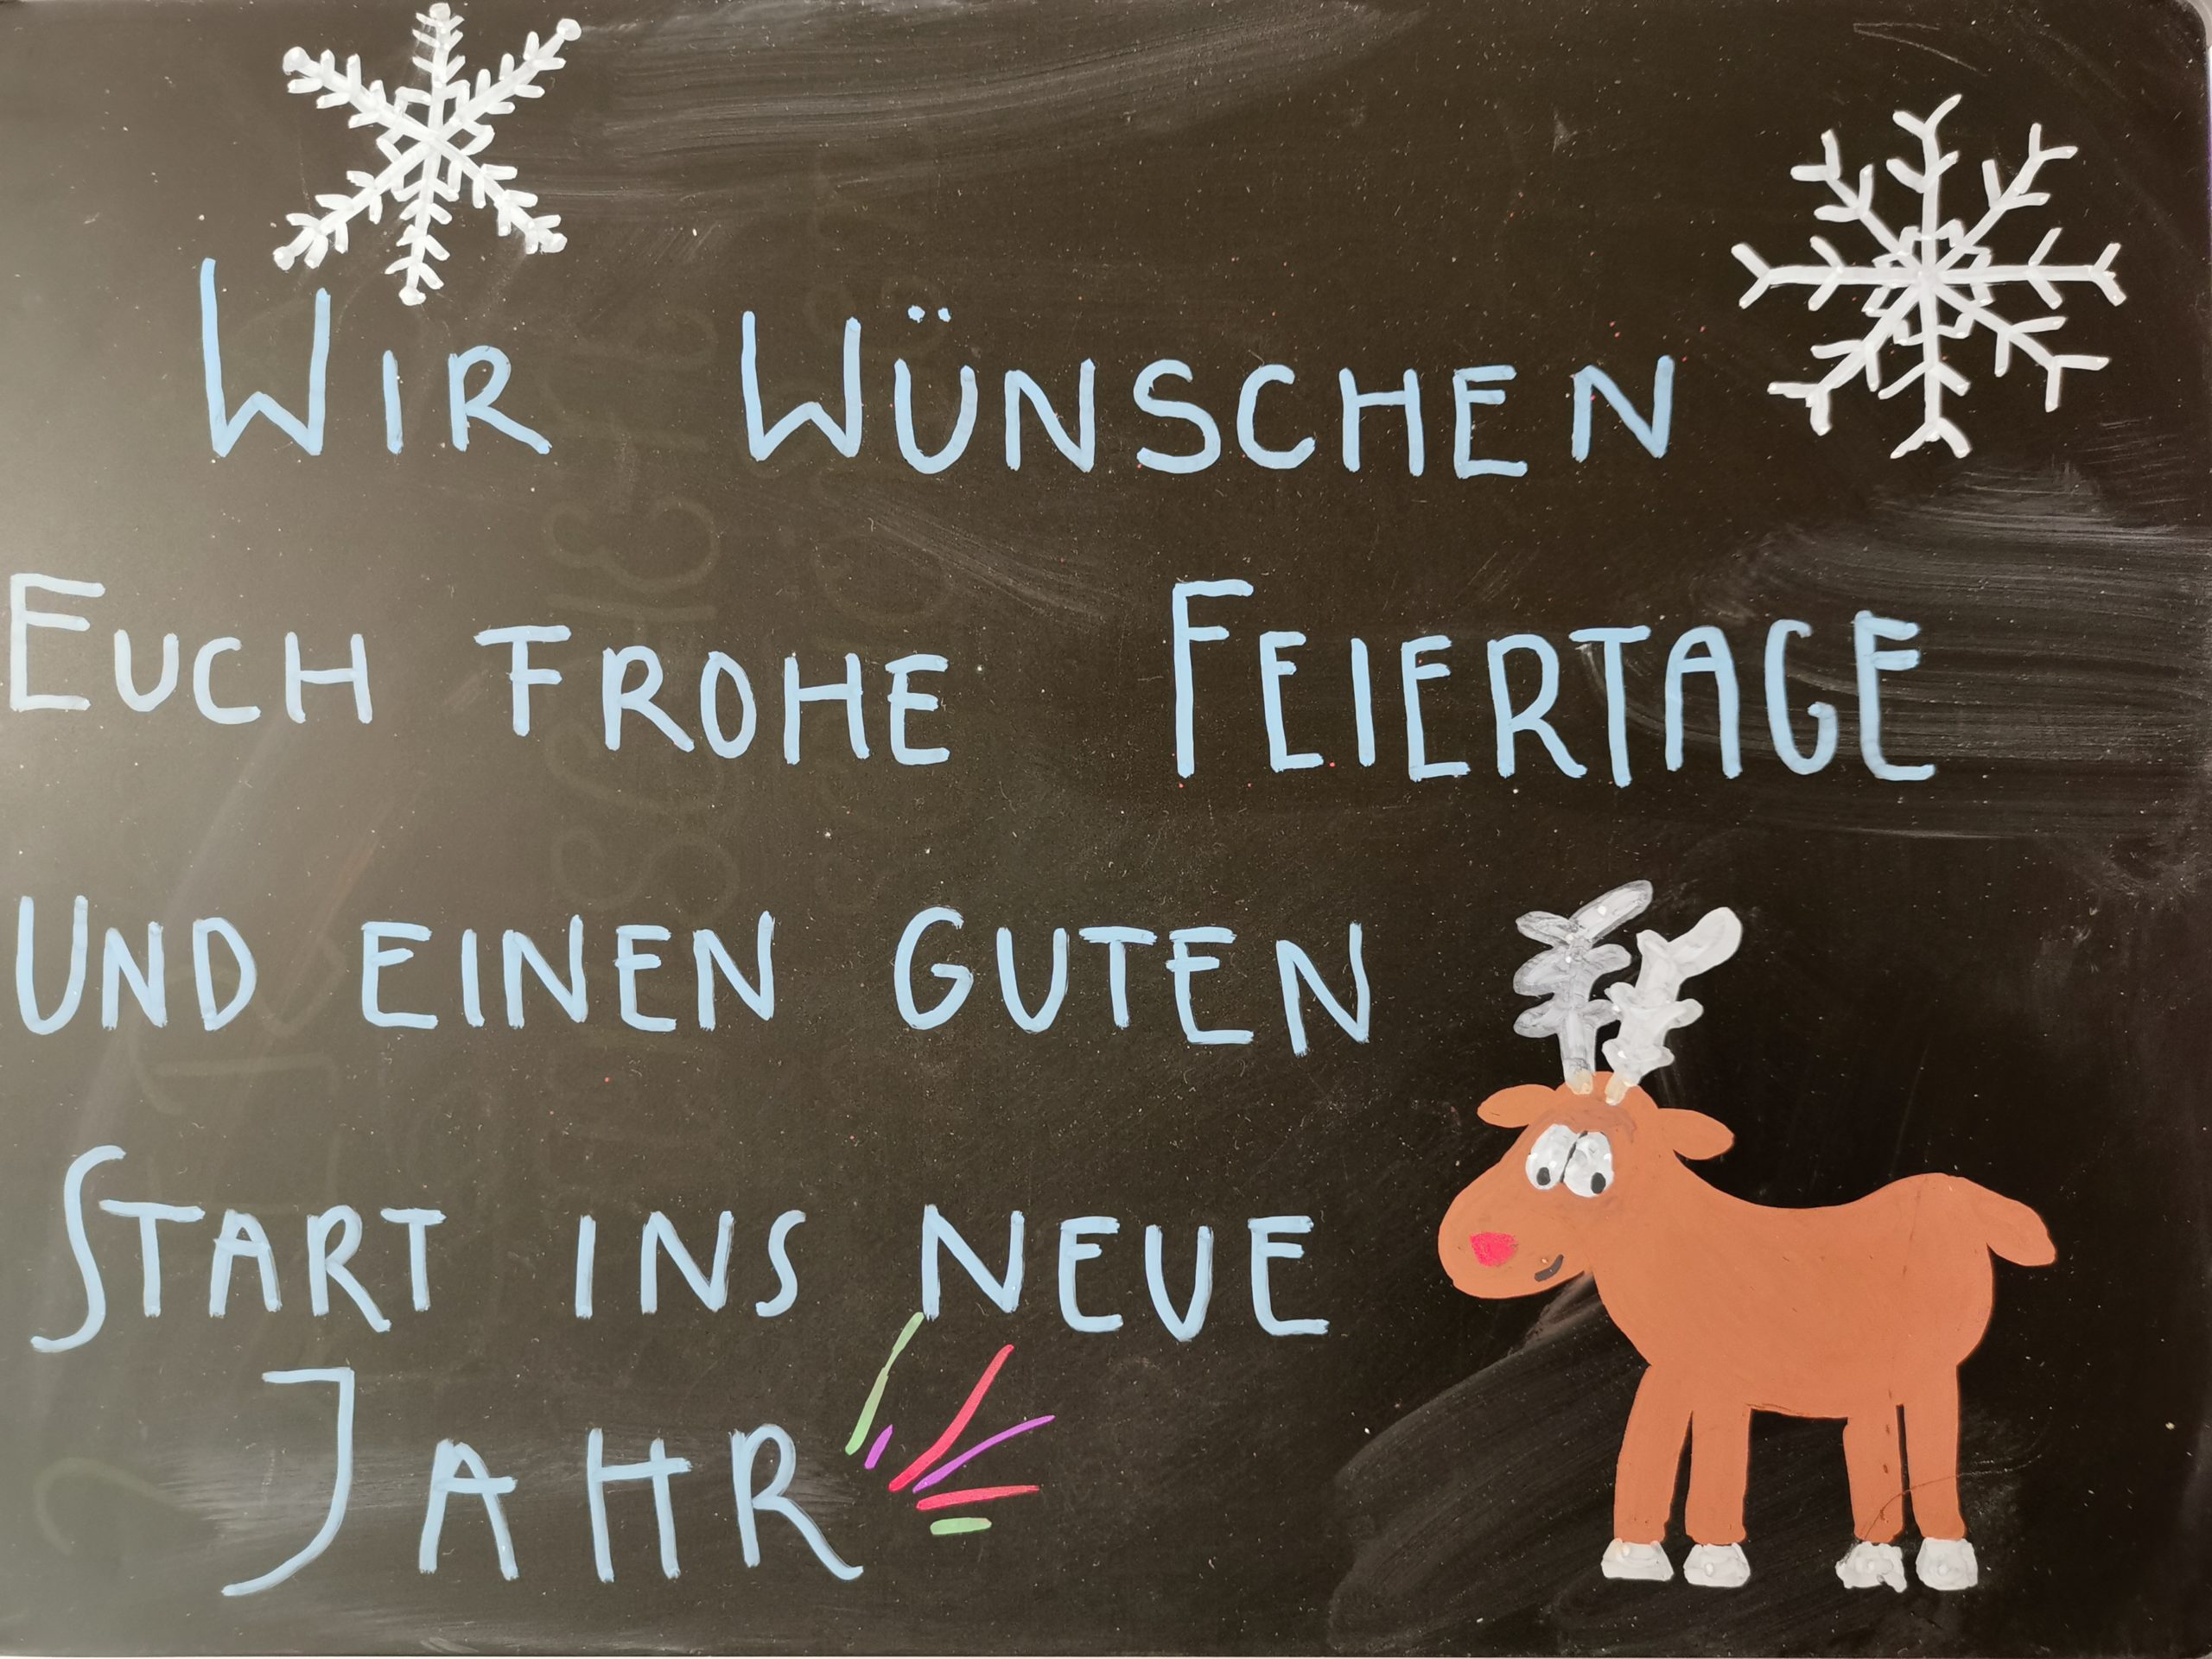 WIR WÜNSCHEN
EUCH FROHE FEIERTAGE
UND EINEN GUTEN
START INS NEUE
JAHR